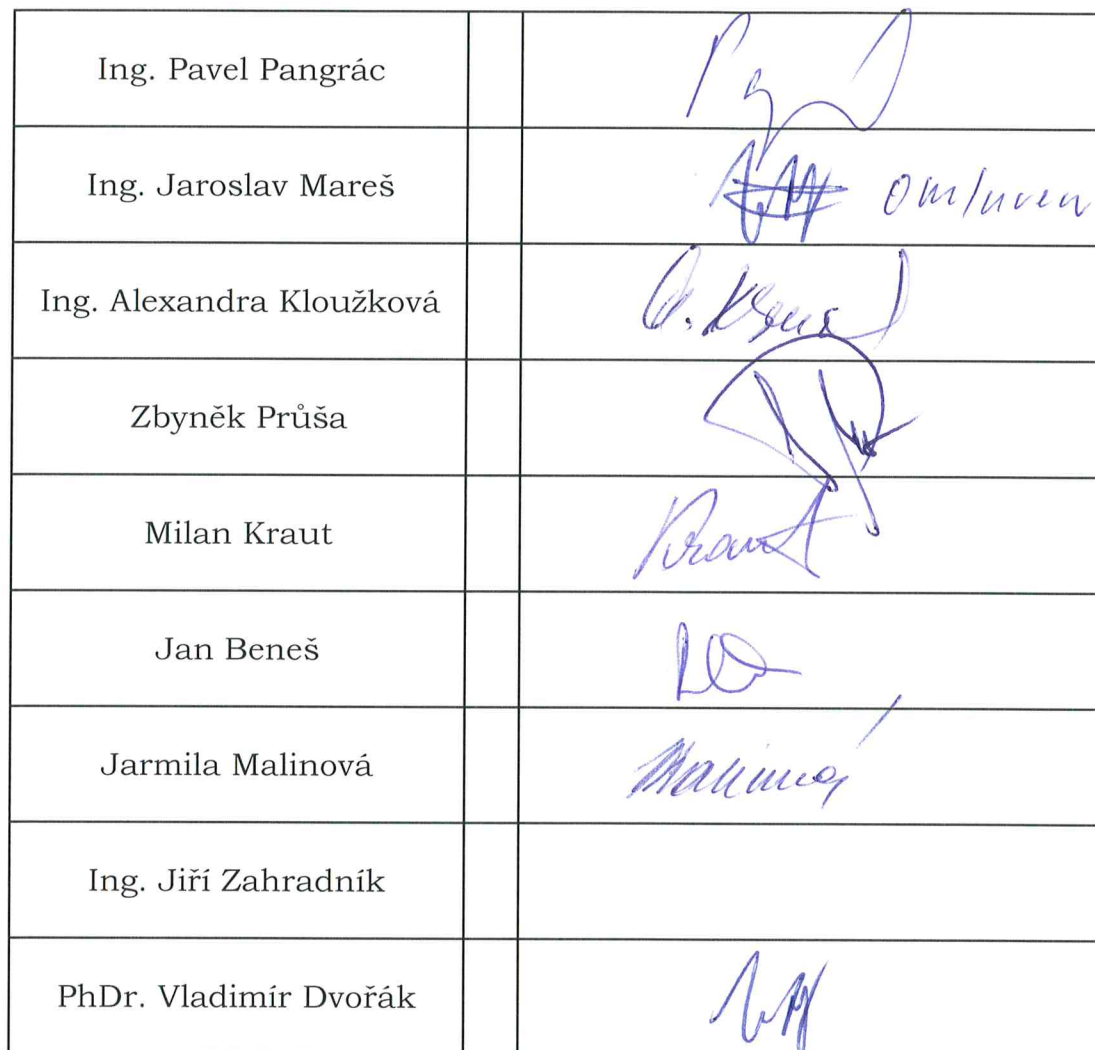 Ing. Pavel Pangrác
Ing. Jaroslav Mareš
omluven
Ing. Alexandra Kloužková
Zbyněk Průša
Milan Kraut
Kraut
Jan Beneš
Jarmila Malinová
Malinová
Ing. Jiří Zahradník
PhDr. Vladimír Dvořák